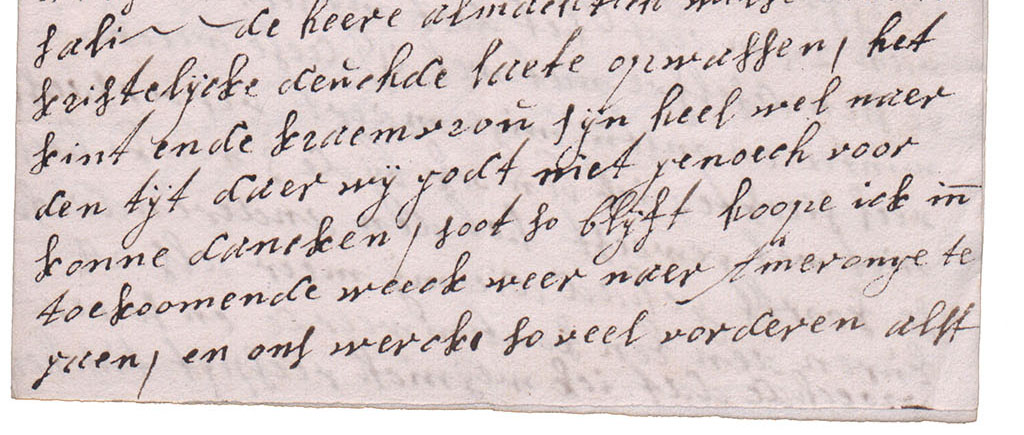 de heere almachtich
kristelijcke deuchde laete opwassen, het
kint ende kraemvrou sijn heel wel naer
den tijt daer wij godt niet genoech voor
konne dancken, soot so blijft hoope ick in
toekoomende weeck weer naer te
gaen, en ons werck so veel vorderen alst